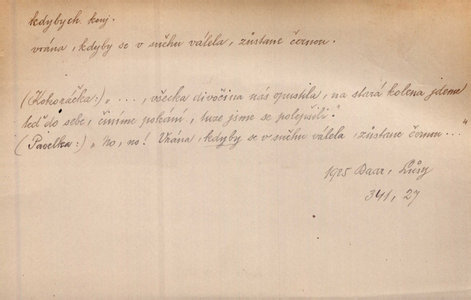 kdybych. konj.
vrána, kdyby se v sněhu válela, zůstane černou.
(Kohoráčka:) „..., všecka divočina nás opustila, na stará kolena jdeme
teď do sebe, činíme pokání, tuze jsme se polepšili."
(Pavelka:) „No, no! Vrána, kdyby se v sněhu válela, zůstane černou..."
1905 Baar,
341, 27